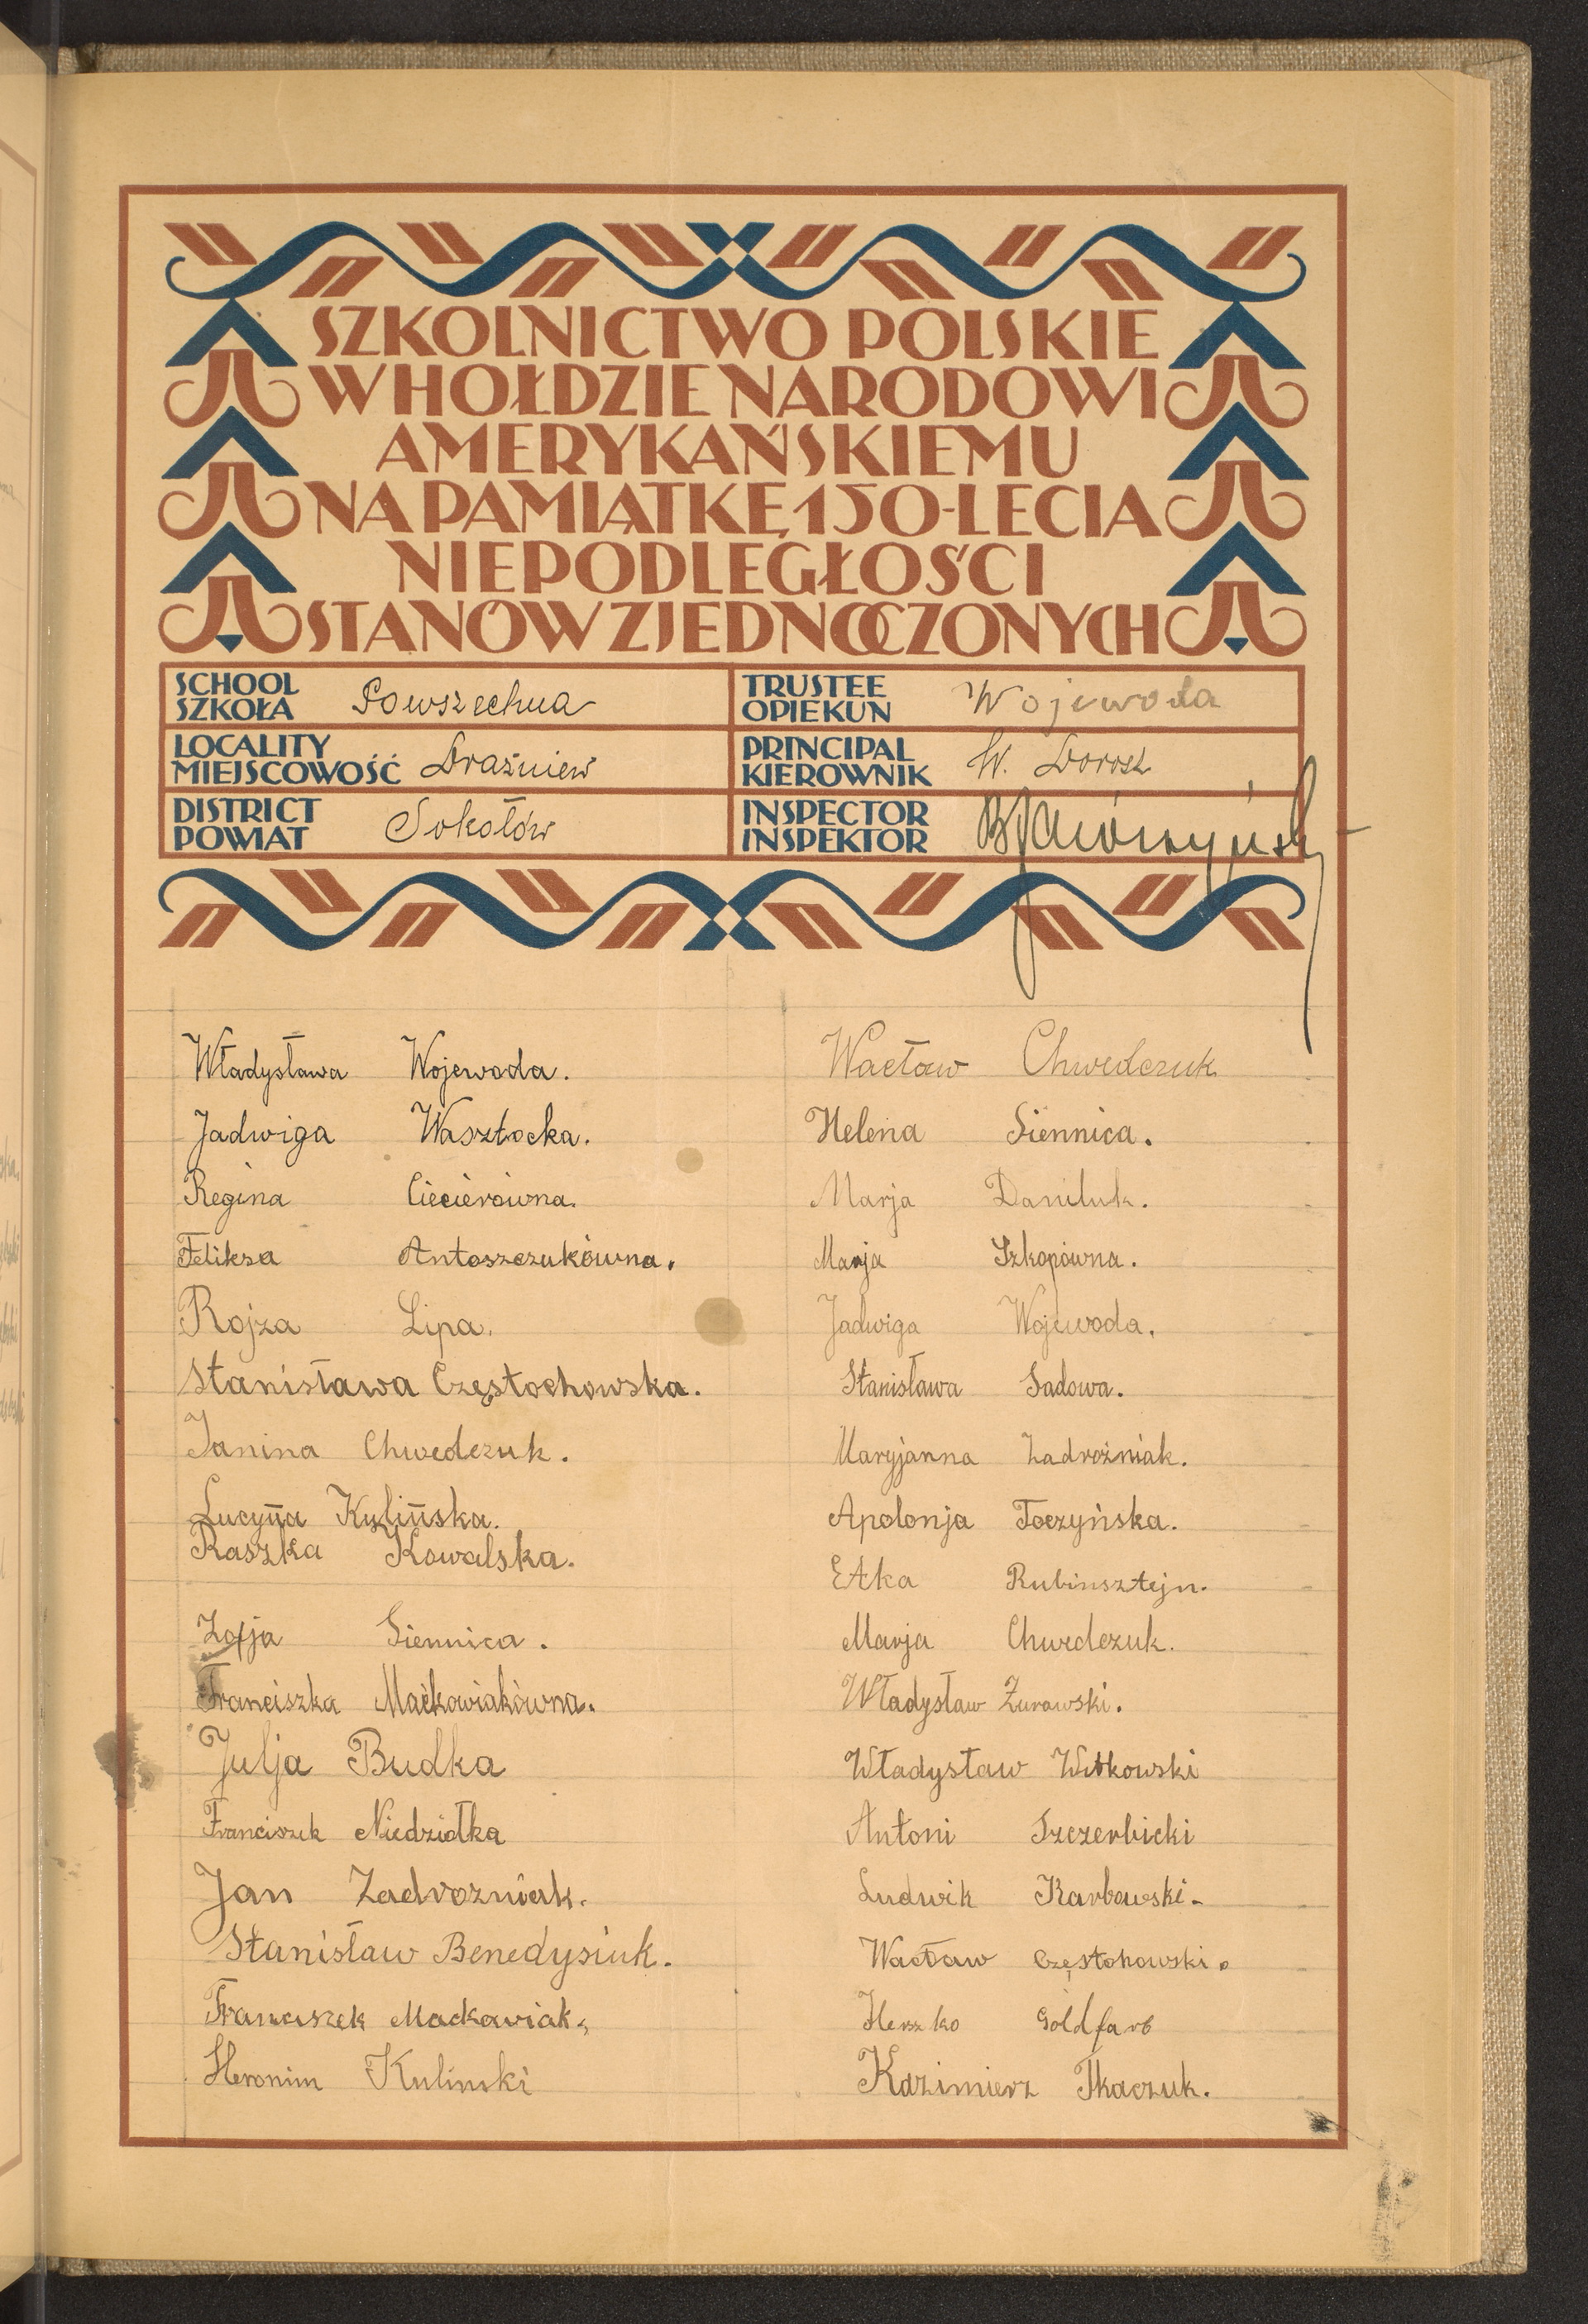 SZKOLNICTWO POLSKIE
W HOŁDZIE NARODOWI
AMERYKAŃSKIEMU
NA PAMIĄTKĘ 150-LECIA
NIEPODLEGŁOŚCI
STANÓW ZJEDNOCZONYCH
SCHOOL
SZKOŁA Powszechna
LOCALITY
MIEJSCOWOŚĆ Drażniew
DISTRICT
POWIAT Sokołów
TRUSTEE
OPIEKUN Wojewoda
PRINCIPAL
KIEROWNIK W. Dorosz
INSPECTOR
INSPEKTOR
Władysława Wojewoda.
Jadwiga Waszłocka.
Regina Ciecierówna.
Feliksa Antoszczukówna.
Rojza Lipa.
Stanisława Częstochowska.
Janina Chwedczuk.
Lucyna Kulińska.
Raszka Kowalska.
Zofja Siennica.
Franciszka Maćkowiakówna.
Julja Budka
Franciszek Niedziółka
Jan Zadrożniak.
Stanisław Benedysiuk.
Franciszek Mackowiak.
Heronim Kulinski
Wacław Chwedczuk
Helena Siennica.
Marja Daniluk.
Marja Szkopówna.
Jadwiga Wojewoda.
Stanisława Sadowa.
Maryjanna Zadrożniak.
Apolonja Toczyńska.
Etka Rubinsztejn.
Marja Chwedczuk.
Władysław Żurawski.
Władysław Witkowski
Antoni Szczerbicki
Ludwik Karbowski.
Wacław Częstohowski.
Herszko Goldfarb
Kazimierz Tkaczuk.